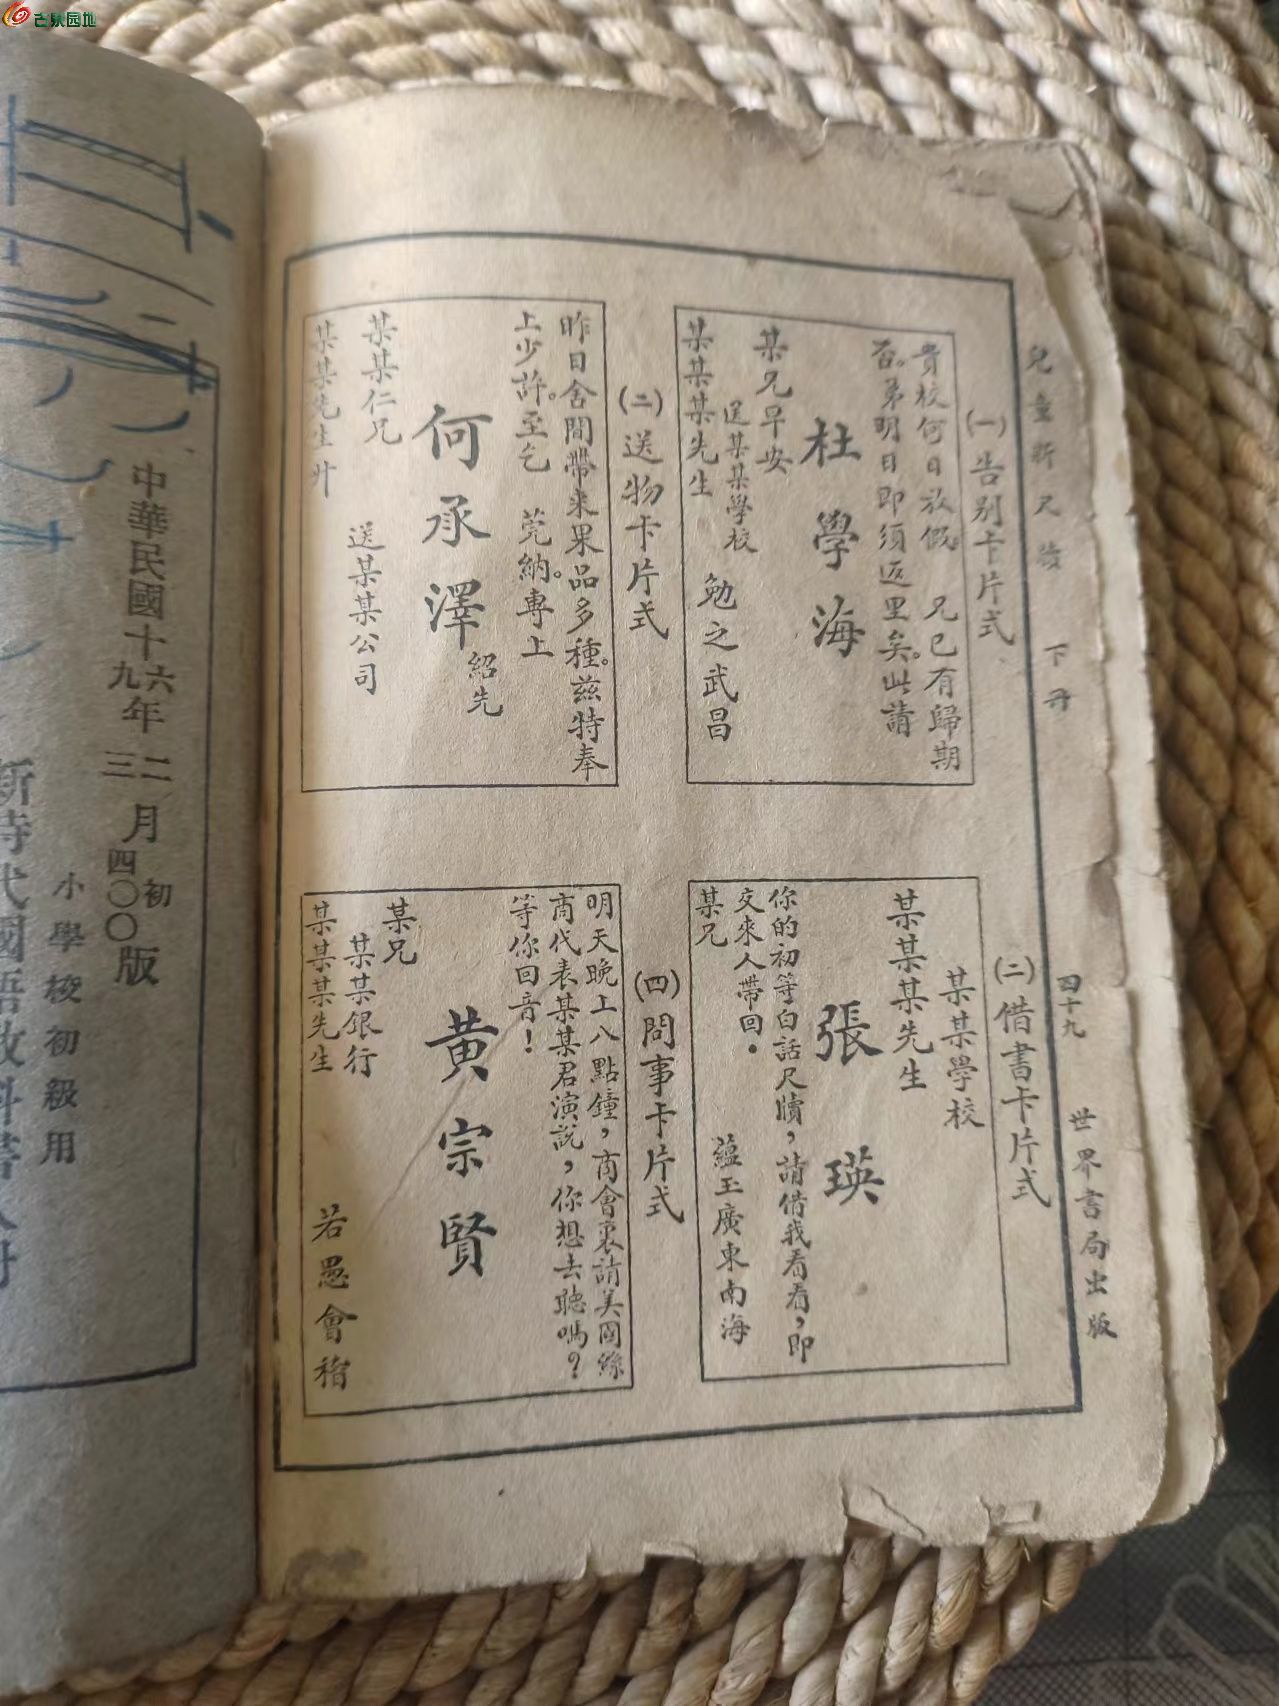 古泉园地
兒童新尺牘
下冊
四十九
世界書局出版
(一)告別卡片式
貴校何日放假 兄已有歸期
否。弟明日即須返里矣。此請
杜學海
某兄早安
送某某學校
某某某先生
勉之武昌
(二)送物卡片式
昨日舍間帶來果品多種。茲特奉
上少許。至乞 莞納。專上
何承澤
紹先
某某仁兄
送某某公司
某某先生升
(二)借書卡片式
某某學校
某某某先生
張瑛
你的初等白話尺牘，請借我看看，即
交來人帶回。
某兄
蘊玉廣東南海
(四)問事卡片式
明天晚上八點鐘，商會裏請美國絲
商代表某某君演說，你想去聽嗎？
等你回音！
黃宗賢
某兄
某某銀行
某某某先生
若愚會稽
中華民國十六年二月初版
九 三 四〇〇
小學校初級用
新時代國語教科書八冊